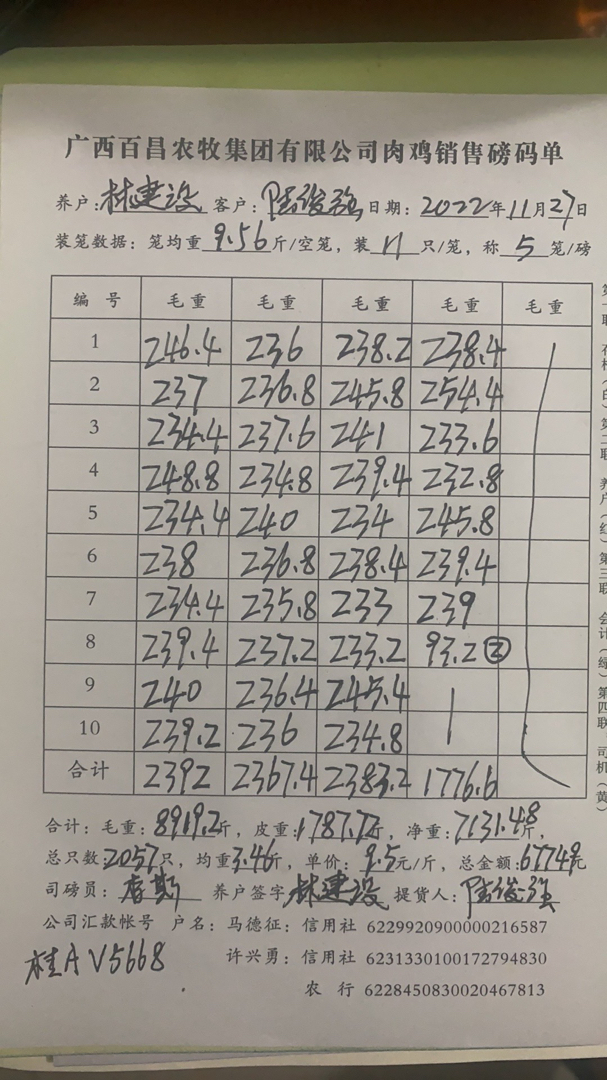 广西百昌农牧集团有限公司肉鸡销售磅码单
养户:林建设 客户: 日期: 2022年11月27日
装笼数据: 笼均重9.56斤/空笼, 装11只/笼, 称5笼/磅
编号 毛重 毛重 毛重 毛重 毛重
1 246.4 236 238.2 238.4
2 237 236.8 245.8 254.4
3 234.4 237.6 241 233.6
4 248.8 234.8 239.4 232.8
5 234.4 240 234 245.8
6 238 236.8 238.4 239.4
7 234.4 235.8 233 239
8 239.4 237.2 233.2 93.2②
9 240 236.4 245.4
10 239.2 236 234.8
合计 2392 2367.4 2383.2 1776.6
合计: 毛重: 8919.2斤, 皮重: 1787.72斤, 净重: 7131.48斤,
总只数: 2057只, 均重3.46斤, 单价: 9.5元/斤, 总金额: 67749元
司磅员: 养户签字林建设 提货人:
公司汇款帐号 户名: 马德征: 信用社 6229920900000216587
桂A V5668 许兴勇: 信用社 6231330100172794830
农行 6228450830020467813
第二联 养户(红) 第三联 会计(绿) 第四联 司机(黄)